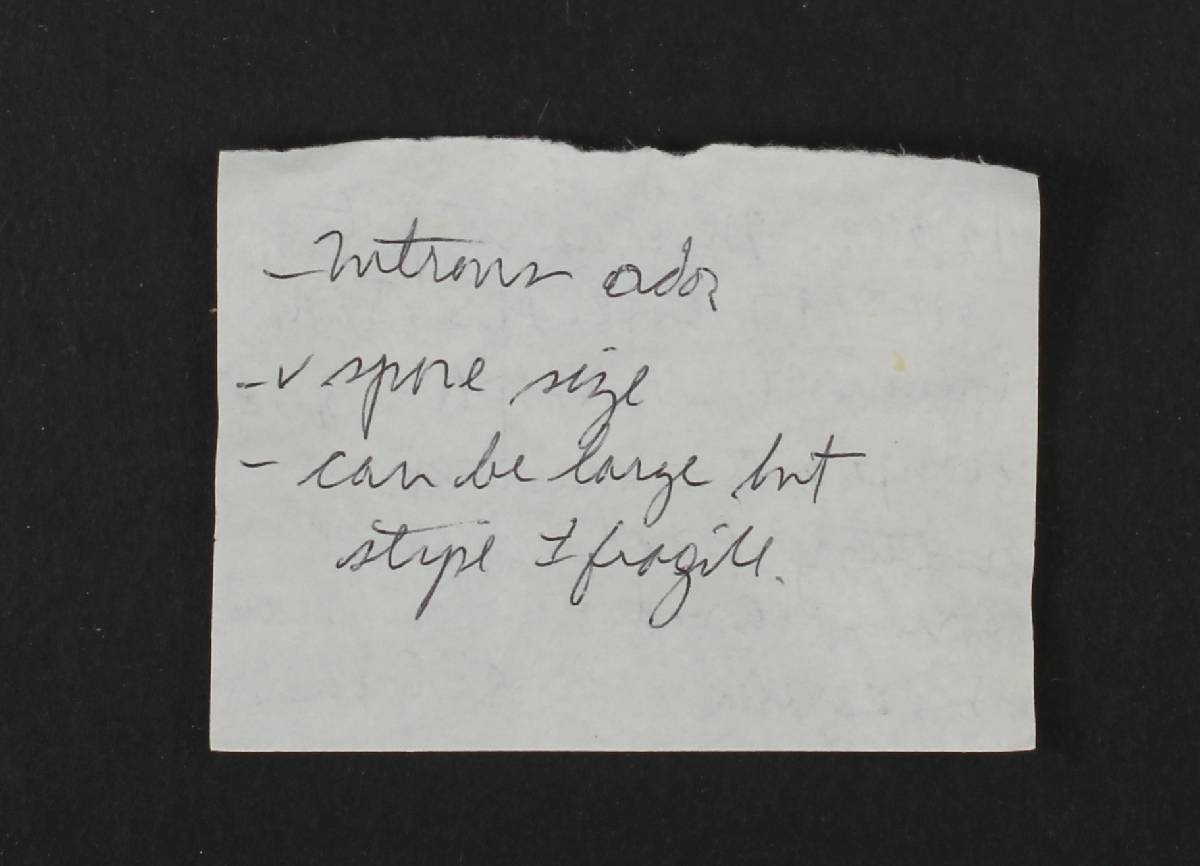 - Nitrous odor
- ✓ spore size
- can be large but
stipe ± fragile.